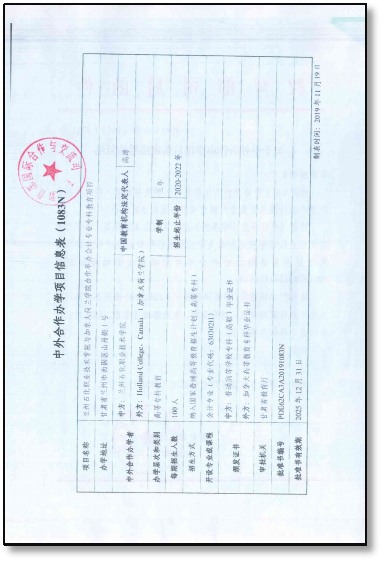 中外合作办学项目信息表（1083N）
项目名称 兰州石化职业技术学院与加拿大荷兰学院合作举办会计专业专科教育项目
办学地址 甘肃省兰州市西固区山丹街1号
中外合作办学者 中方：兰州石化职业技术学院 中国教育机构法定代表人
外方：Holland College，Canada（加拿大荷兰学院）
办学层次和类别 高等专科教育 学制 三年
每期招生人数 100人 招生起止年份 2020-2022年
招生方式 纳入国家普通高等教育招生计划（高等专科）
开设专业或课程 会计专业（专业代码：630302H）
颁发证书 中方：普通高等学校专科（高职）毕业证书
外方：加拿大高等教育专科毕业证书
审批机关 甘肃省教育厅
批准书编号 PDE62CA3A20191083N
批准书有效期 2025年12月31日
制表时间：2019年11月19日
国际合作与交流司